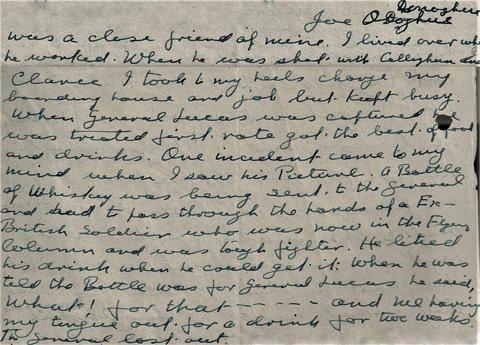 Donoghue
Joe O Doghue
was a close friend of mine. I lived over where
he worked. When he was shot with Callaghan and
Clancy I took to my heels change my
boarding house and job but kept busy.
When General Lucas was captured he
was treated first rate got the best of food
and drinks. One incident came to my
mind when I saw his Picture. A Bottle
of Whiskey was being sent to the General
and had to pass through the hands of a Ex-
British Soldier who was now in the Flying
Column and was tough fighter. He liked
his drink when he could get it. When he was
told the Bottle was for General Lucas he said,
What! for that ----- and me having
my tongue out for a drink for two weeks.
The General lost out.